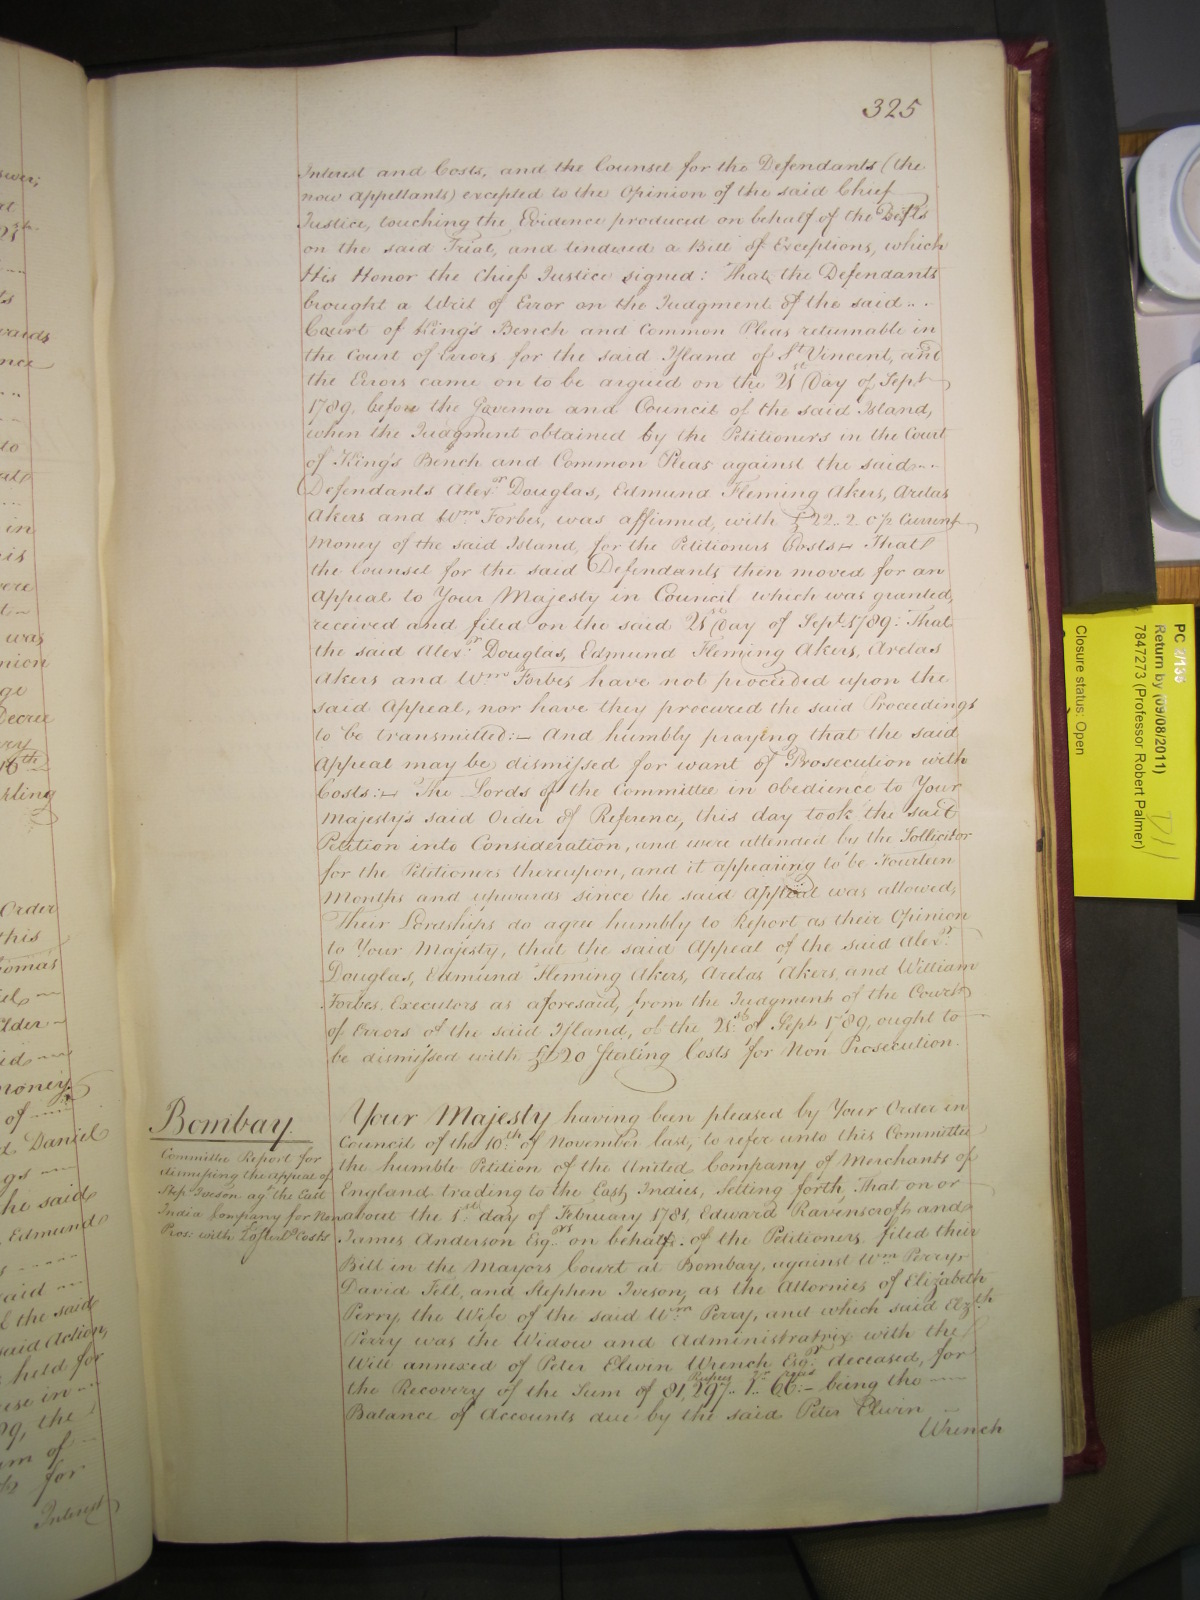 325
Interest and Costs, and the Counsel for the Defendants (the
now appellants) excepted to the Opinion of the said Chief
Justice, touching the Evidence produced on behalf of the Defts
on the said Trial, and tendered a Bill of Exceptions, which
His Honor the Chief Justice signed: That the Defendants
brought a Writ of Error on the Judgment of the said ...
Court of King's Bench and Common Pleas returnable in
the Court of Errors for the said Island of St Vincent, and
the Errors came on to be argued on the 21st Day of Sept
1789, before the Governor and Council of the said Island,
when the Judgment obtained by the Petitioners in the Court
of King's Bench and Common Pleas against the said ...
Defendants Alexr Douglas, Edmund Fleming Akers, Aretas
Akers and Wm Forbes, was affirmed, with £22..2 Current
Money of the said Island, for the Petitioners Costs – That
the Counsel for the said Defendants then moved for an
Appeal to Your Majesty in Council which was granted,
received and filed on the said 21st Day of Sept 1789: That
the said Alexr Douglas, Edmund Fleming Akers, Aretas
Akers and Wm Forbes have not proceeded upon the
said Appeal, nor have they procured the said Proceedings
to be transmitted:– And humbly praying that the said
Appeal may be dismissed for want of Prosecution with
Costs:– The Lords of the Committee in obedience to Your
Majesty's said Order of Reference, this day took the said
Petition into Consideration, and were attended by the Sollicitor
for the Petitioners thereupon, and it appearing to be Fourteen
Months and upwards since the said Appeal was allowed,
Their Lordships do agree humbly to Report as their Opinion
to Your Majesty, that the said Appeal of the said Alexr
Douglas, Edmund Fleming Akers, Aretas Akers, and William
Forbes, Executors as aforesaid, from the Judgment of the Court
of Errors of the said Island, of the 21st of Sept 1789, ought to
be dismissed with £20 Sterling Costs for Non Prosecution.
Bombay.
Committee Report for
dismissing the appeal of
Step Iveson agt the East
India Company for Non
Pros: with Costs
Your Majesty having been pleased by Your Order in
Council of the 10th of November last, to refer unto this Committee
the humble Petition of the United Company of Merchants of
England trading to the East Indies, Setting forth, That on or
about the 1st day of February 1781, Edward Ravenscroft and
James Anderson Esqrs on behalf of the Petitioners filed their
Bill in the Mayors Court at Bombay, against Wm Perry
David Fell, and Stephen Iveson, as the Attornies of Elizabeth
Perry, the Wife of the said Wm Perry, and which said Elizth
Perry was the Widow and Administratrix with the
Will annexed of Peter Elwin Wrench Esqr deceased, for
the Recovery of the Sum of 81,297 Rupees.. 1.. 66 – being the
Balance of Accounts due by the said Peter Elwin
Wrench
PC 2/135
Return by (09/08/2011)
7847273 (Professor Robert Palmer)
Closure status: Open
D11